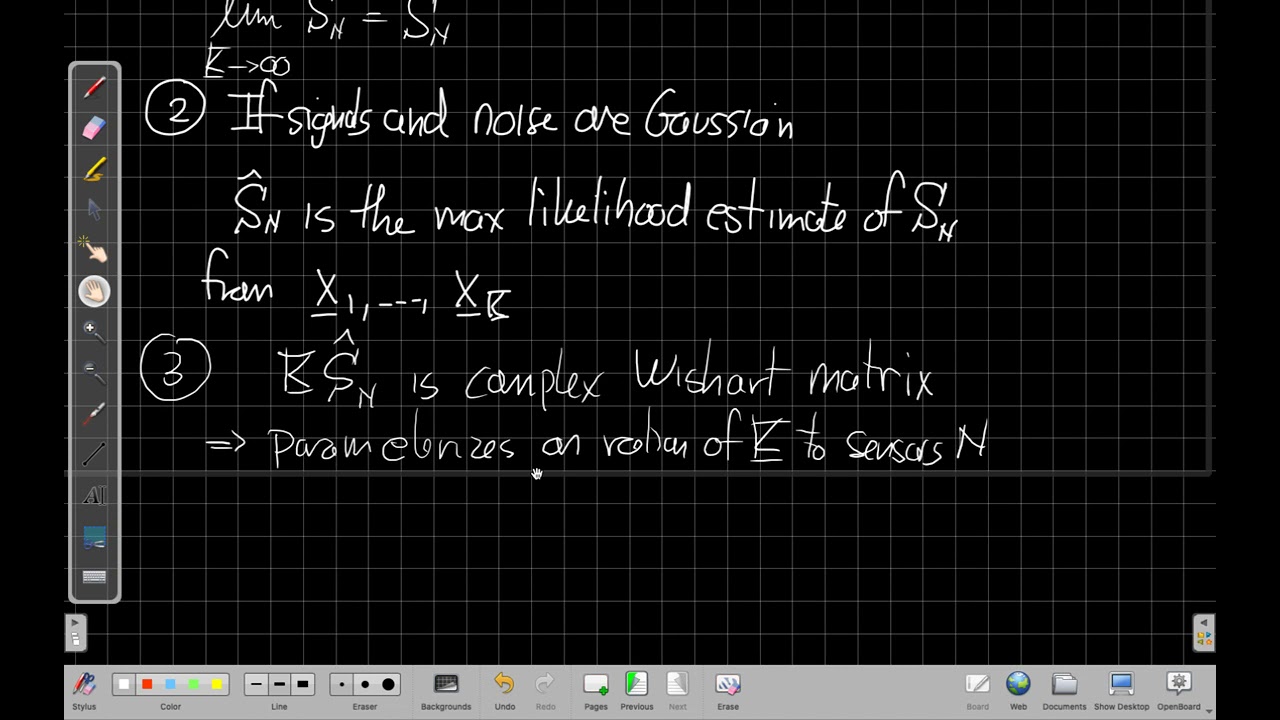 lim Ŝ_N = S_N
K→∞
② If signals and noise are Gaussian
Ŝ_N is the max likelihood estimate of S_N
from X_1, ---, X_K
③ K Ŝ_N is complex Wishart matrix
⇒ parameterizes on ration of K to sensors N
AI
Stylus Color Line Eraser Backgrounds Undo Redo Pages Previous Next Erase Board Web Documents Show Desktop OpenBoard